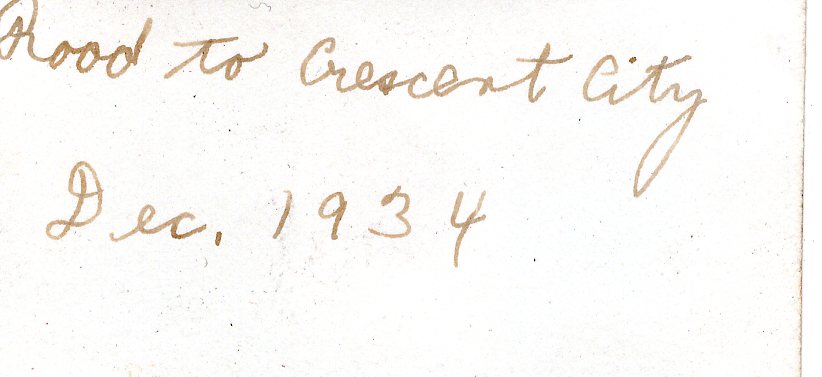 Road to Crescent City
Dec. 1934